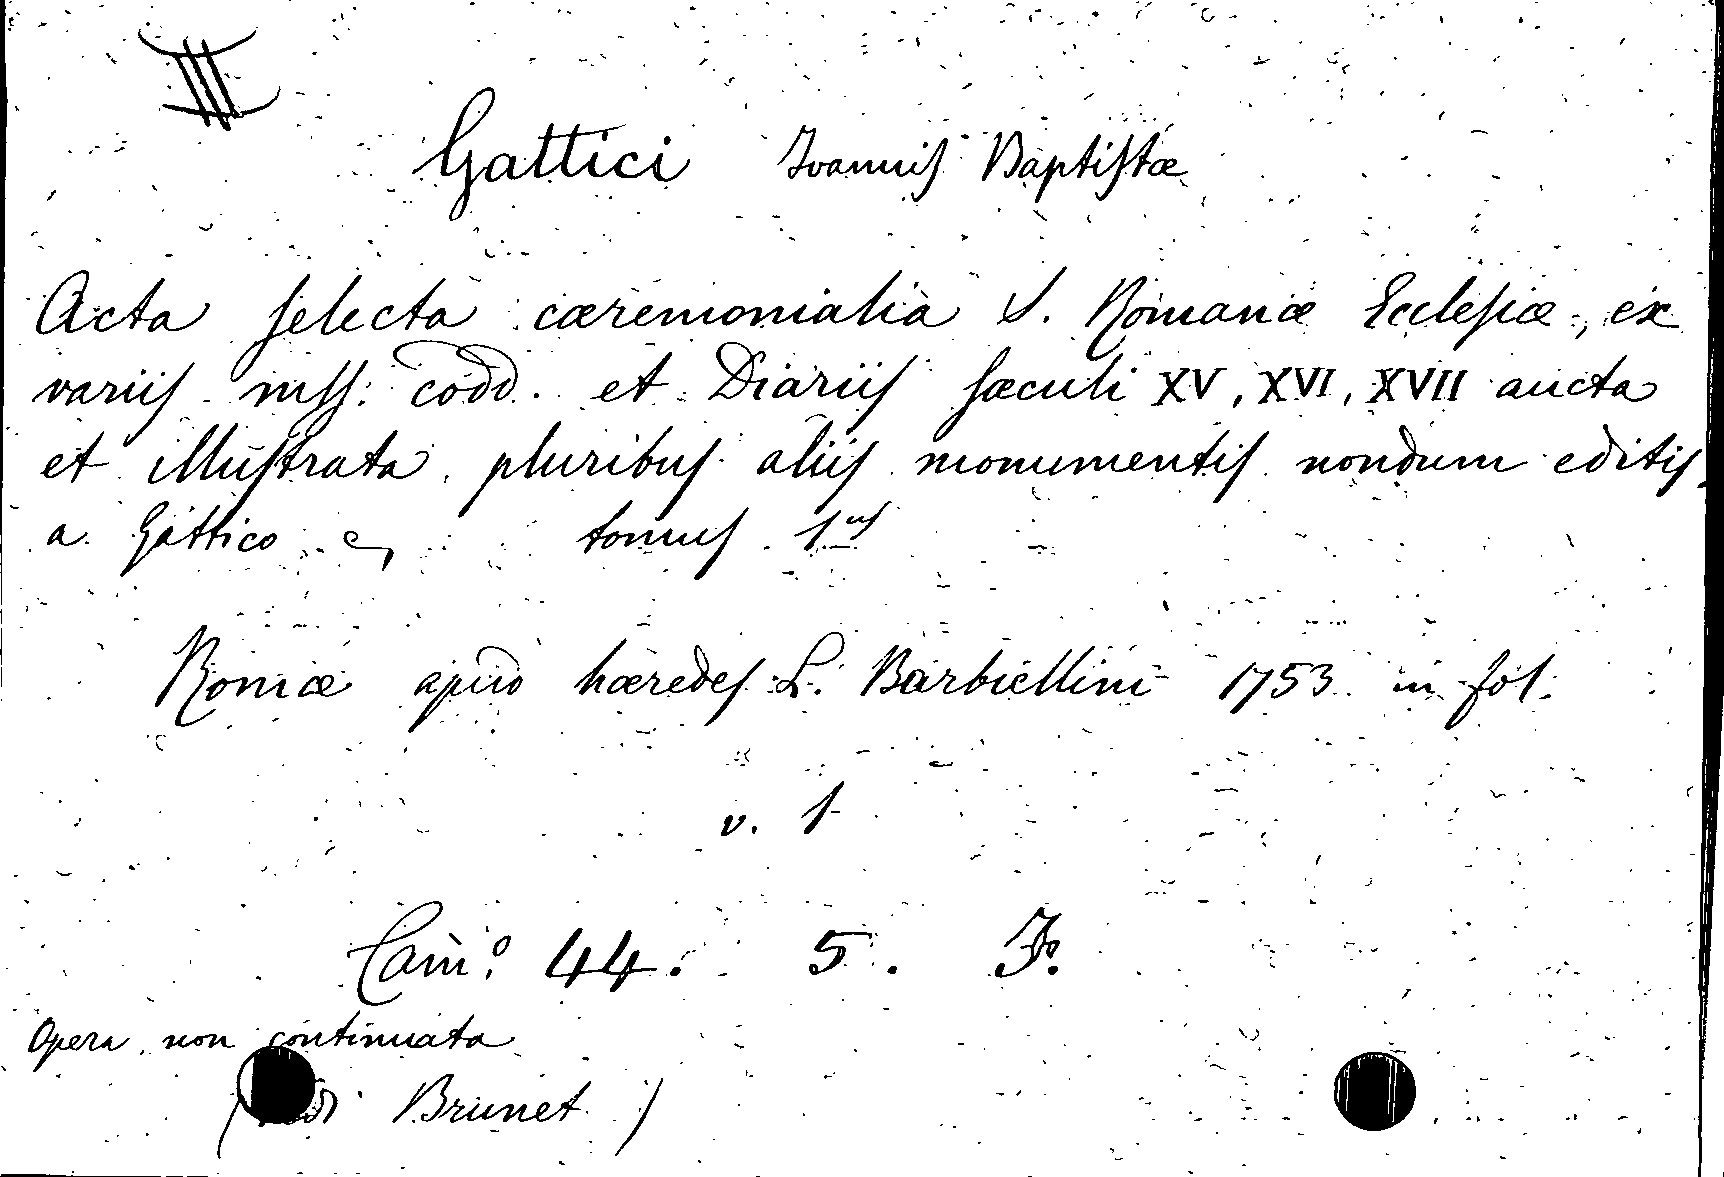 III
Gattici Ioannis Baptistæ
Acta selecta cæremonialia S. Romanæ Ecclesiæ, ex
variis mss. codd. et Diariis sæculi XV, XVI, XVII aucta
et illustrata pluribus aliis monumentis nondum editis,
a Gattico tomus 1us
Romæ apud hæredes L. Barbiellini 1753 in fol.
v. 1
Cam.o 44. 5. F.
Opera non continuata
( Brunet )